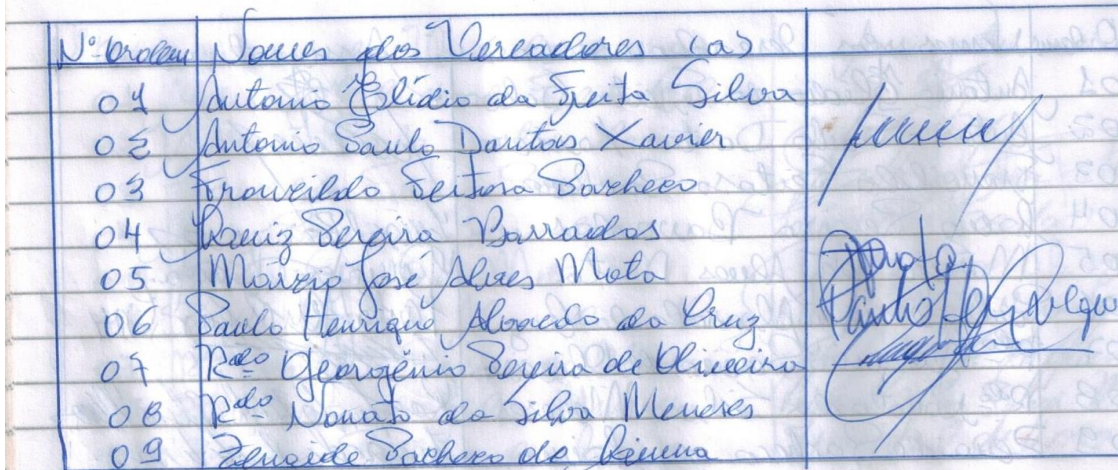 Nº ordem Nomes dos Vereadores (a)
01 Antonio Elidio da Freita Silva
02 Antonio Paulo Dantas Xavier
03 Feitosa Pacheco
04 Pereira Barrados
05 Márzio José Alves Mota
06 Paulo Henrique Alvaedo da Cruz
07 Rdo Georgênio Pereira de Oliveira
08 Rdo Nonato da Silva Meneses
09 Zenaide Pacheco de